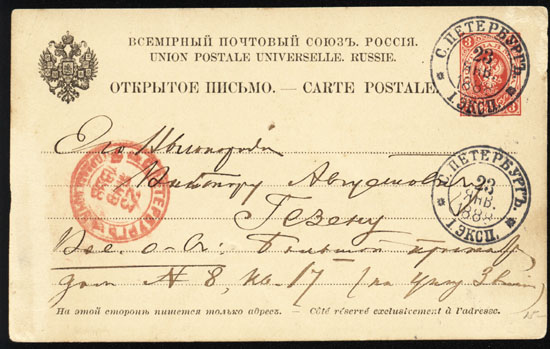 ВСЕМІРНЫЙ ПОЧТОВЫЙ СОЮЗЪ. РОССІЯ.
UNION POSTALE UNIVERSELLE. RUSSIE.
ОТКРЫТОЕ ПИСЬМО. — CARTE POSTALE.
3
С. ПЕТЕРБУРГЪ
23
ЯНВ.
1888
1 ЭКСП.
Его Высокородію
Виктору Августовичу
Гезену
С. ПЕТЕРБУРГЪ
23
ЯНВ.
1888
1 ЭКСП.
Вас. о-въ: Большой
дом № 8, кв. 17 (на углу
На этой сторонѣ пишется только адресъ. — Côté réservé exclusivement à l'adresse.